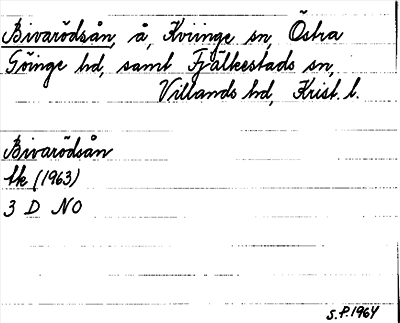 Bivarödsån, å, Kviinge sn, Östra
Göinge hd, samt Fjälkestads sn,
Villands hd, Krist. l.
Bivarödsån
tk (1963)
3 D NO
S.P. 1964